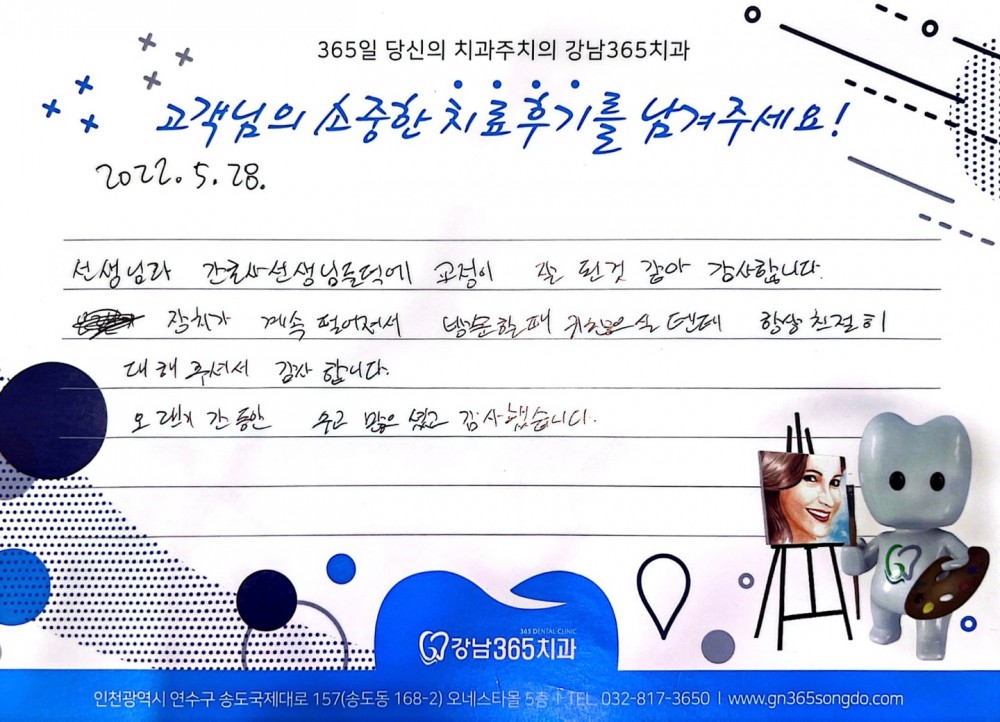 365일 당신의 치과주치의 강남365치과
고객님의 소중한 치료후기를 남겨주세요!
2022. 5. 28.
선생님과 간호사선생님들덕에 교정이 잘 된것 같아 감사합니다.
장치가 계속 떨어져서 방문할때 귀찮으실텐데 항상 친절히
대해 주셔서 감사 합니다.
오랜기간 동안 수고 많으셨고 감사했습니다.
365 DENTAL CLINIC
강남365치과
인천광역시 연수구 송도국제대로 157(송도동 168-2) 오네스타몰 5층 I TEL. 032-817-3650 I www.gn365songdo.com